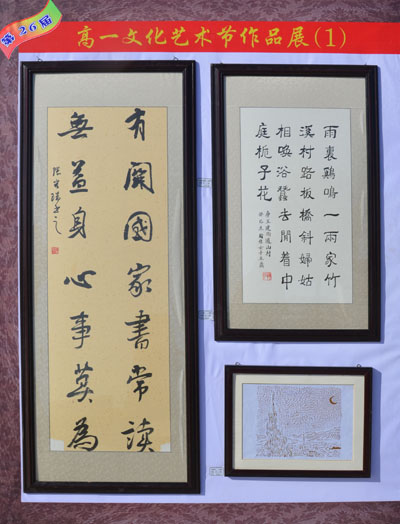 第26届
高一文化艺术节作品展(1)
有關國家書常讀
無益身心事莫為
雨裏鷄鳴一兩家竹
溪村路板橋斜婦姑
相喚浴蠶去閒着中
庭栀子花